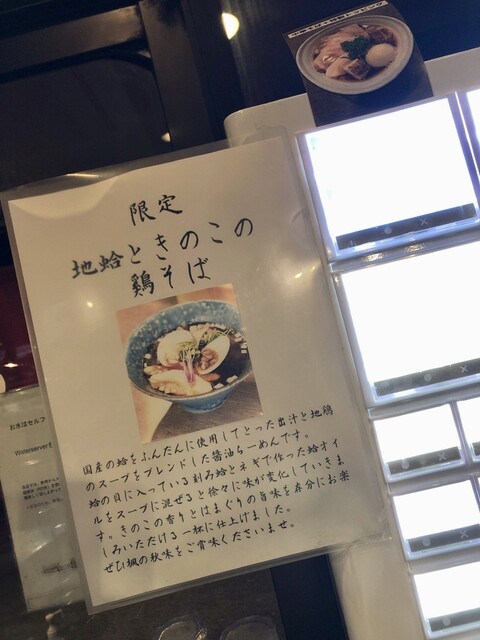 限定
地蛤ときのこの
鶏そば
国産の蛤をふんだんに使用してとった出汁と地鶏
のスープをブレンドした醤油らーめんです。
蛤の貝に入っている刻み蛤とネギで作った蛤オイ
ルをスープに混ぜると徐々に味が変化していきま
す。きのこの香りとはまぐりの旨味を存分にお楽
しみいただける一杯に仕上げました。
ぜひ楓の秋味をご賞味くださいませ。
お水はセルフ
Waterserver